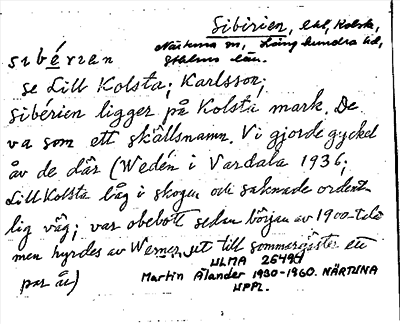 Sibirien, lht, Kolsta,
Närtuna sn, Långhundra hd,
Sthlms län.
sibérien
se Lill Kolsta; Karlsson;
sibérien ligger på Kolsta mark. De
va som ett skällsnamn. Vi gjorde gyckel
åv de där (Wedén i Vardala 1936;
Lill Kolsta låg i skogen och saknade ordent-
lig väg; var obebott sedan början av 1900-talet
men hyrdes av Werner ut till sommargäster ett
par år)
ULMA 26494
Martin Ålander 1930-1960. NÄRTUNA
UPPL.